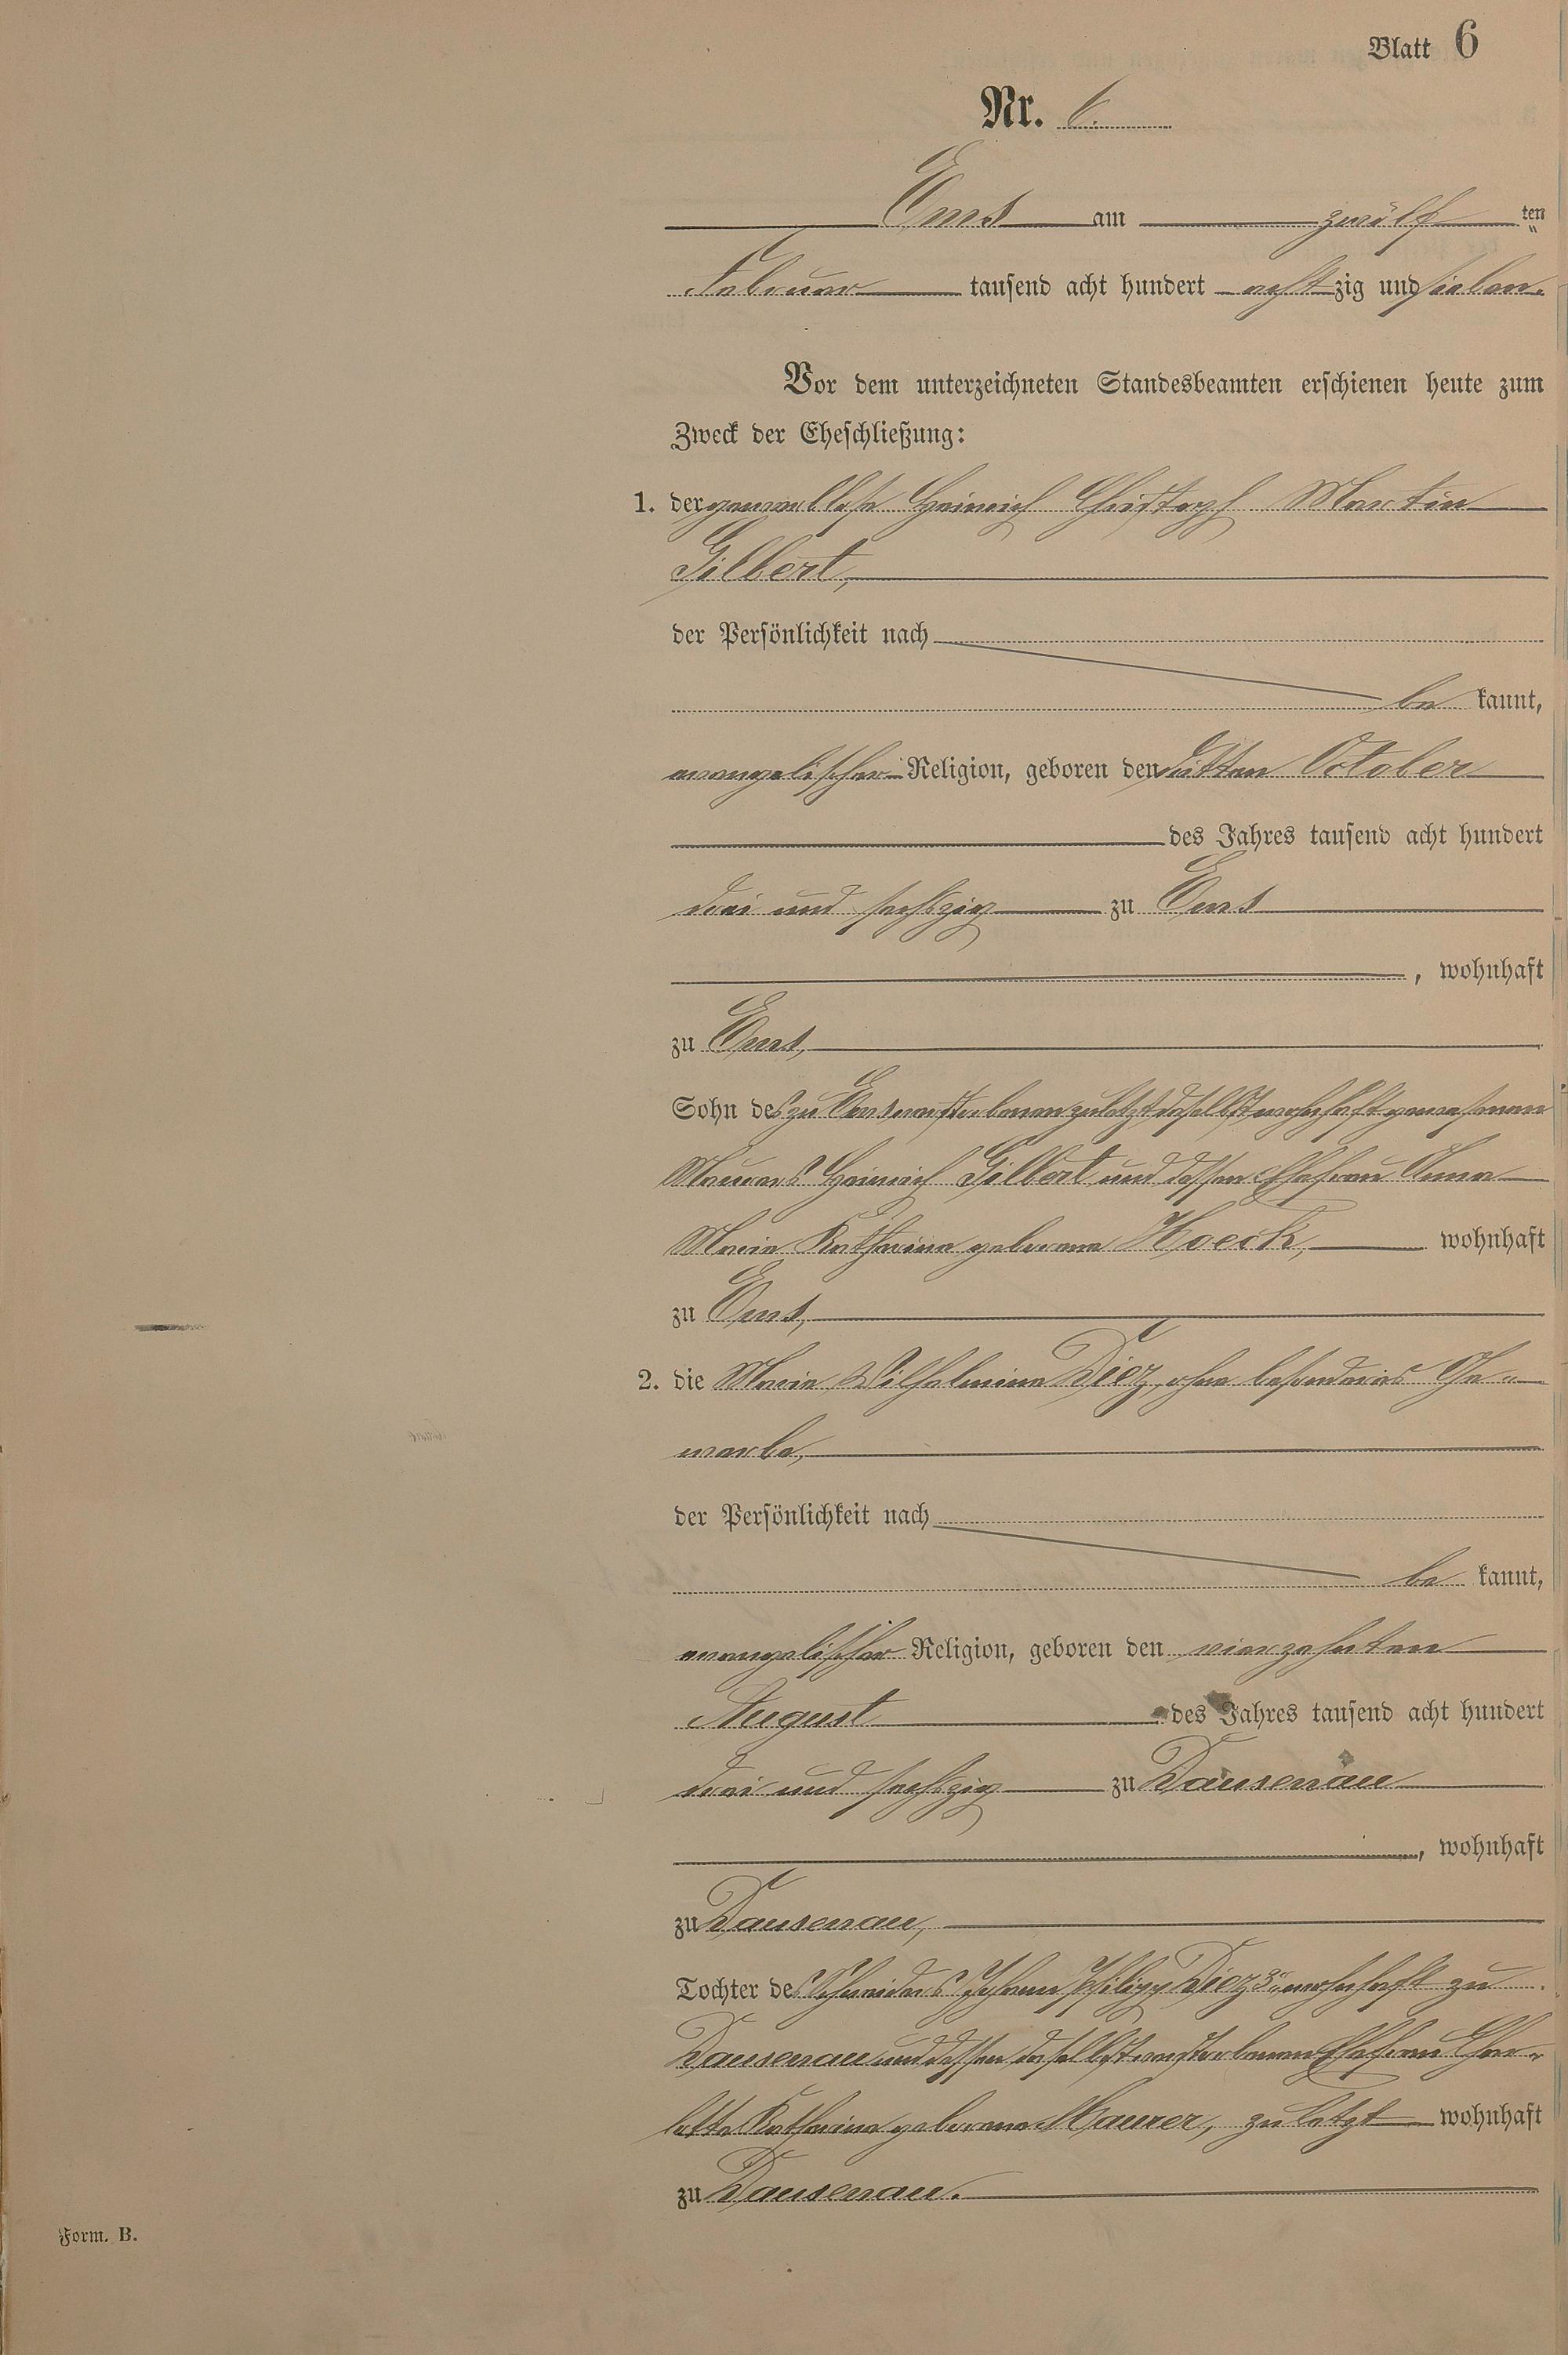 Blatt 6
Nr. 6.
Ems am zwölf ten
Februar tausend acht hundert acht zig und sieben.
Vor dem unterzeichneten Standesbeamten erschienen heute zum
Zweck der Eheschließung:
1. der gewerblose Heinrich Christoph Martin
Gilbert,
der Persönlichkeit nach
be kannt,
evangelischer Religion, geboren den dritten October
des Jahres tausend acht hundert
drei und sechszig zu Ems
, wohnhaft
zu Ems,
Sohn des zu Ems verstorbenen zuletzt daselbst wohnhaft gewesenen
Maurers Heinrich Gilbert und dessen Ehefrau Anna
Maria Katharina geborene Hoeck, wohnhaft
zu Ems,
2. die Maria Wilhelmina Diez, ohne besonderes Ge-
werbe,
der Persönlichkeit nach
be kannt,
evangelischer Religion, geboren den vierzehnten
August des Jahres tausend acht hundert
drei und sechszig zu Dausenau
, wohnhaft
zu Dausenau,
Tochter des Schneiders Johann Philipp Diez 3r wohnhaft zu
Dausenau und dessen daselbst verstorbenen Ehefrau Char-
lotte Katharina geborene Maurer, zuletzt wohnhaft
zu Dausenau.
Form. B.